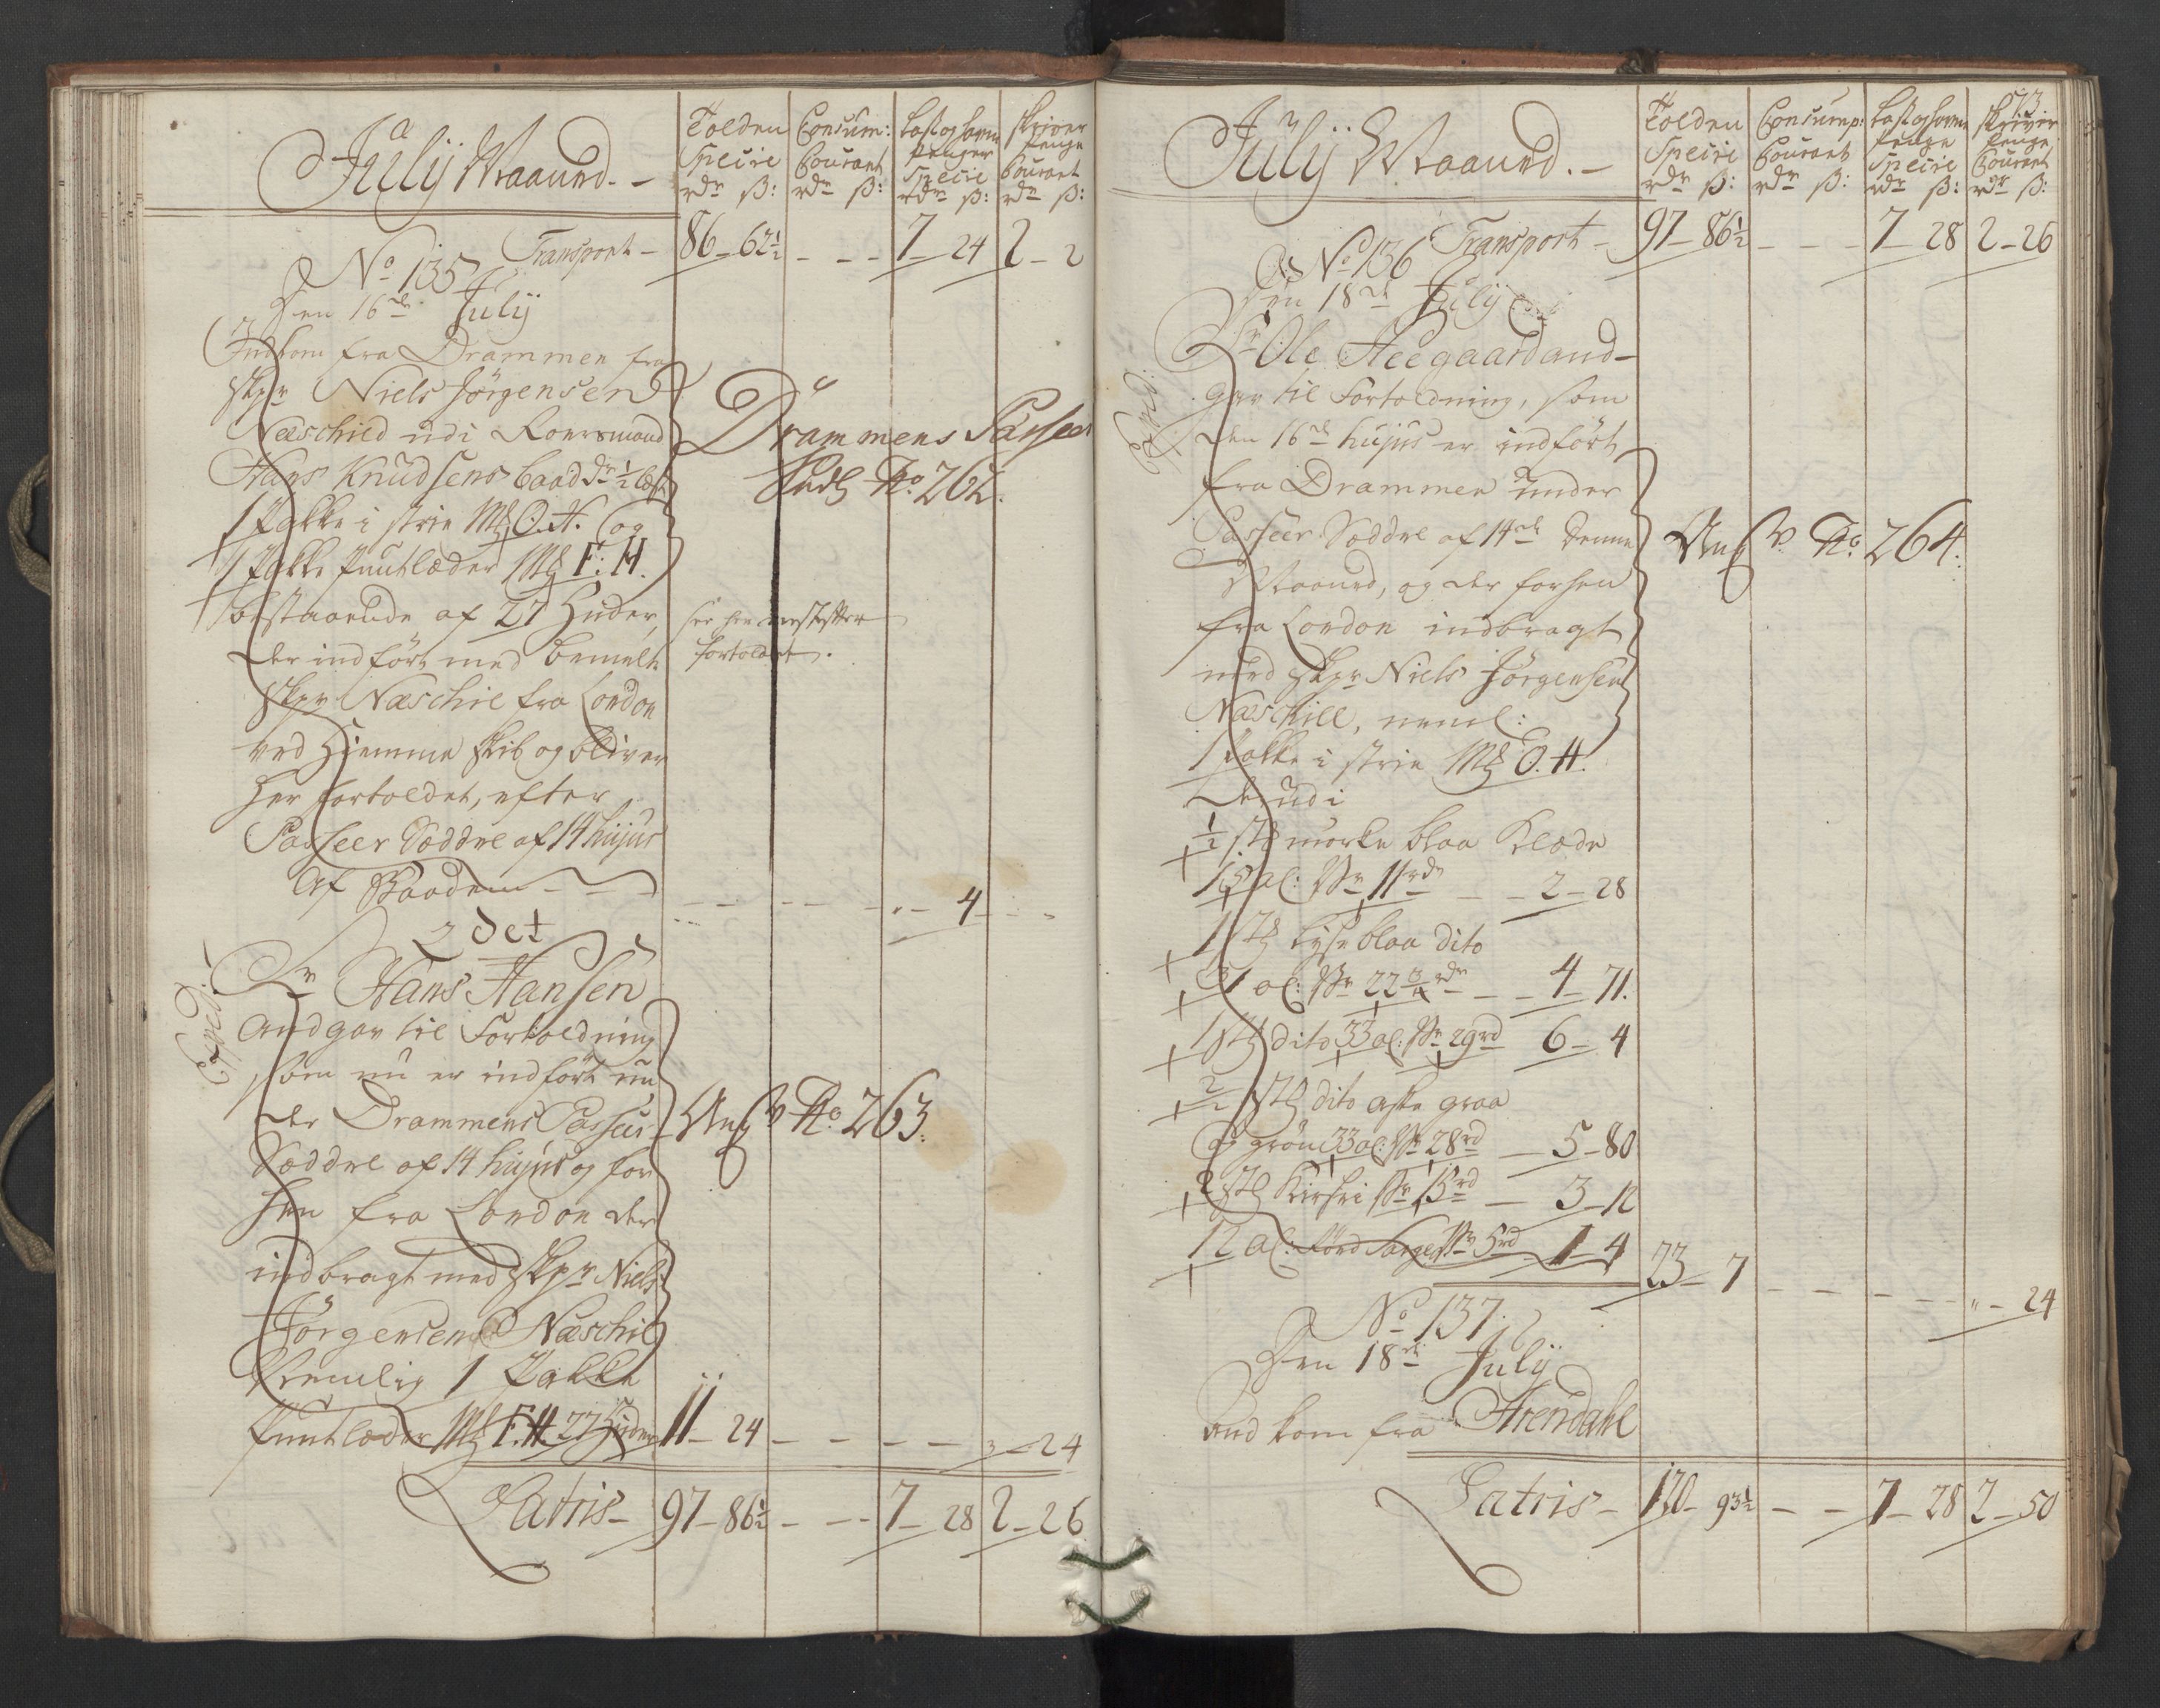 Julÿ Maaned. -
Tolden
Specie
rdr ß:
Consum:
Courant
rdr ß:
Last og havne
Penger
Specie
rdr ß:
Skriver
Penge
Courant
rdr ß:
Transport - 86 - 62½ - - - 7 - 24 2 - 2
No 135
Den 16de Julÿ
Indkom fra Drammen fra
Skpr Niels Jörgensen
Næschild udi Roersmand
Hans Knudsens baad dr ½ læst
1 Pakke i strie Mk O. H. og
1 Pakke Puntlæder Mk F: H.
bestaaende af 27 Huder,
der indført med bemelte
Skpr Næschil fra London
ved Hiemme Skib og bliver
her fortoldet, efter
Passeer Sæddel af 14 hujus
Drammens Passeer
Sedl No 262.
see hen næstefter
fortoldet.
Af Baaden - - - - - - " - 4 - - -
2det
Exped:
Sr Hans Hansen
Andgav til Fortoldning
som nu er indført un
der Drammens Passeer
Sæddel af 14 hujus og for
hen fra London der
indbragt med Skpr Niels
Jörgensen Næschil
Nemlig 1 Pakke
Puntlæder Mk F. H. 27 Huder 11 - 24 - - - - " - 24
Ang No 263.
Latris - 97 - 86½ - - - 7 - 28 2 - 26
Julÿ Maaned. -
73
Tolden
Specie
rdr ß:
Consump:
Courant
rdr ß:
Last og havne
Penge
Specie
rdr ß:
Skriver
Penge
Courant
rdr ß:
Transport - 97 - 86½ - - - 7 - 28 2 - 26
No 136
Den 18de Julÿ
Exped:
Sr Ole Heegaard and-
gav til Fortoldning, som
den 16de hujus er indført
fra Drammen under
Passeer Sæddel af 14de denne
Maaned, og der forhen
fra London indbragt
med Skpr Niels Jörgensen
Næschill, neml:
Ang No 264.
1 Pakke i strie Mk O. H.
derudi
½ stk mørke blaa Klæde
15 al: Vr 11rdr - - 2 - 28
1 stk lyse blaa dito
31 al: Vr 22 rdr - - 4 - 71.
1 stk dito 33 al: Vr 29rd 6 - 4
2/2 stk dito aske graa
og grön 33 al: Vr 28rd - 5 - 80
2 stk Kirsei Vr 15rd - 3 - 12
12 al: Sarge Vr 5rd 1 - 4 23 - 7 - - - - " - 24
No 137.
Den 18de Julÿ
Ind kom fra Arendahl
Latris - 120 - 93½ - - 7 - 28 2 - 50